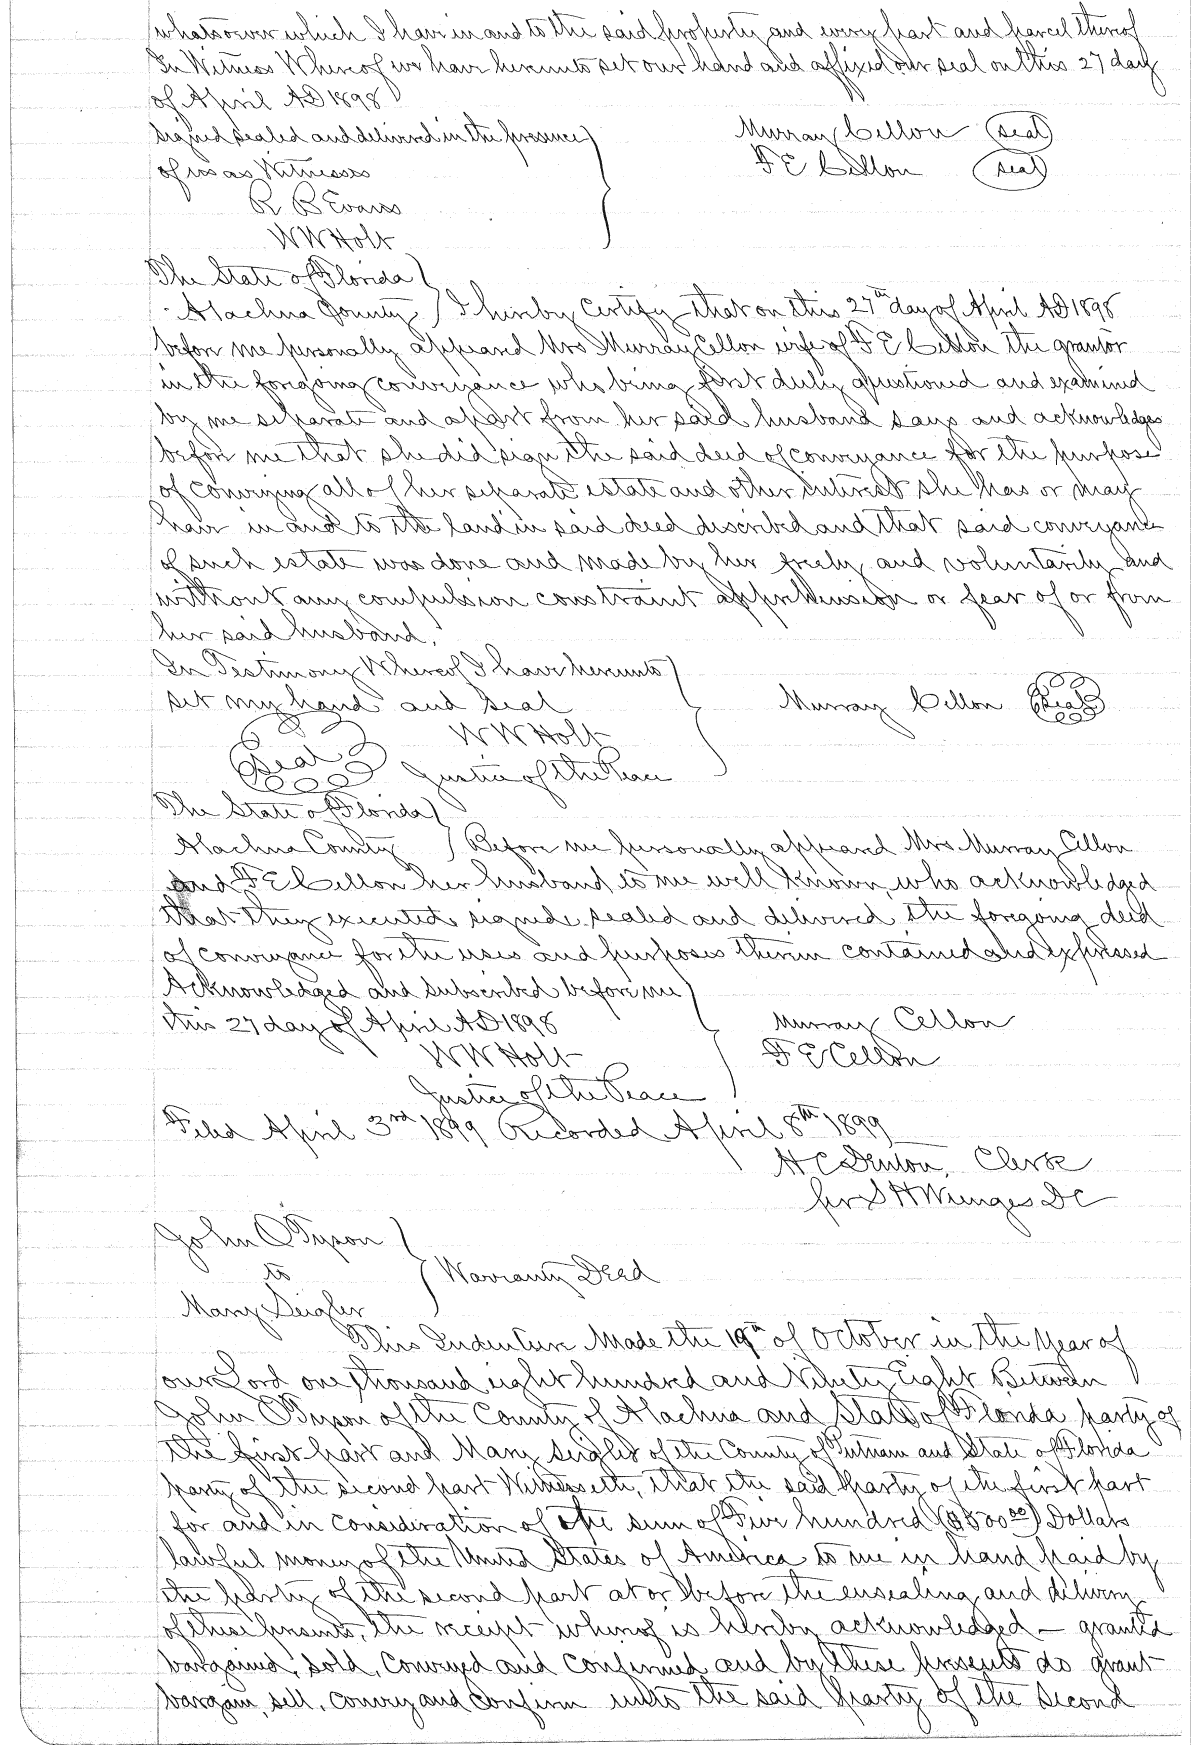 whatsoever which I have in and to the said property and every part and parcel thereof
In Witness Whereof we have hereunto set our hand and affixed our seal on this 27 day
of April AD 1898
Signed sealed and delivered in the presence
of us as Witnesses
Murray Cellon (seal)
F E Cellon (seal)
R B Evans
W W Holt
The State of Florida
Alachua County I hereby Certify that on this 27th day of April AD 1898
before me personally appeard Mrs Murray Cellon wife of F E Cellon the grantor
in the foregoing conveyance who being first duly questioned and examined
by me separate and apart from her said husband says and acknowledges
before me that she did sign the said deed of conveyance for the purpose
of conveying all of her separate estate and other interest she has or may
have in and to the land in said deed described and that said conveyance
of such estate was done and made by her freely and voluntarily and
without any compulsion constraint apprehension or fear of or from
her said husband.
In Testimony Whereof I have hereunto
set my hand and Seal
Murray Cellon Seal
W W Holt
Seal Justice of the Peace
The State of Florida
Alachua County Before me personally appeard Mrs Murray Cellon
and F E Cellon her husband to me well known, who acknowledged
that they executed, signed, sealed and delivered the foregoing deed
of conveyance for the uses and purposes therein contained and expressed
Acknowledged and Subscribed before me
this 27 day of April AD 1898
Murray Cellon
W W Holt
F E Cellon
Justice of the Peace
Filed April 3rd 1899 Recorded April 8th 1899
H C Denton, Clerk
per S H Wienges DC
John C Tyson
to
Warranty Deed
Mary Seigler
This Indenture Made the 19th of October in the Year of
our Lord one thousand eight hundred and Ninety Eight Between
John C Tyson of the County of Alachua and State of Florida party of
the first part and Mary Seigler of the County of Putnam and State of Florida
party of the second part Witnesseth, that the said party of the first part
for and in consideration of the sum of Five hundred ($500 00) Dollars
lawful money of the United States of America to me in hand paid by
the party of the second part at or before the ensealing and delivery
of these presents, the receipt whereof is hereby acknowledged - granted
bargained, sold, Conveyed and Confirmed and by these presents do grant
bargain, sell, convey and Confirm unto the said party of the Second